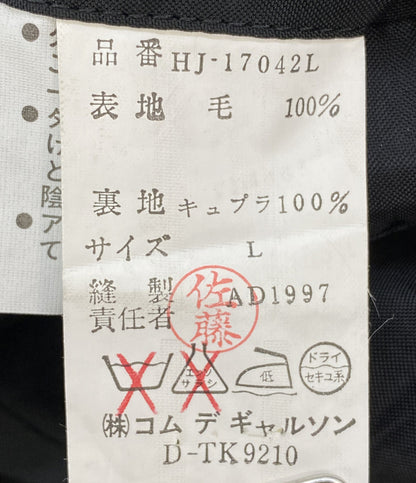 品番 HJ-17042L
表地 毛 100%
裏地 キュプラ100%
サイズ L
縫製 AD1997
責任者
佐藤
エンソ
サラシ
低
ドライ
セキユ系
(株)コム デ ギャルソン
D-TK9210
け
と
陰ア
て